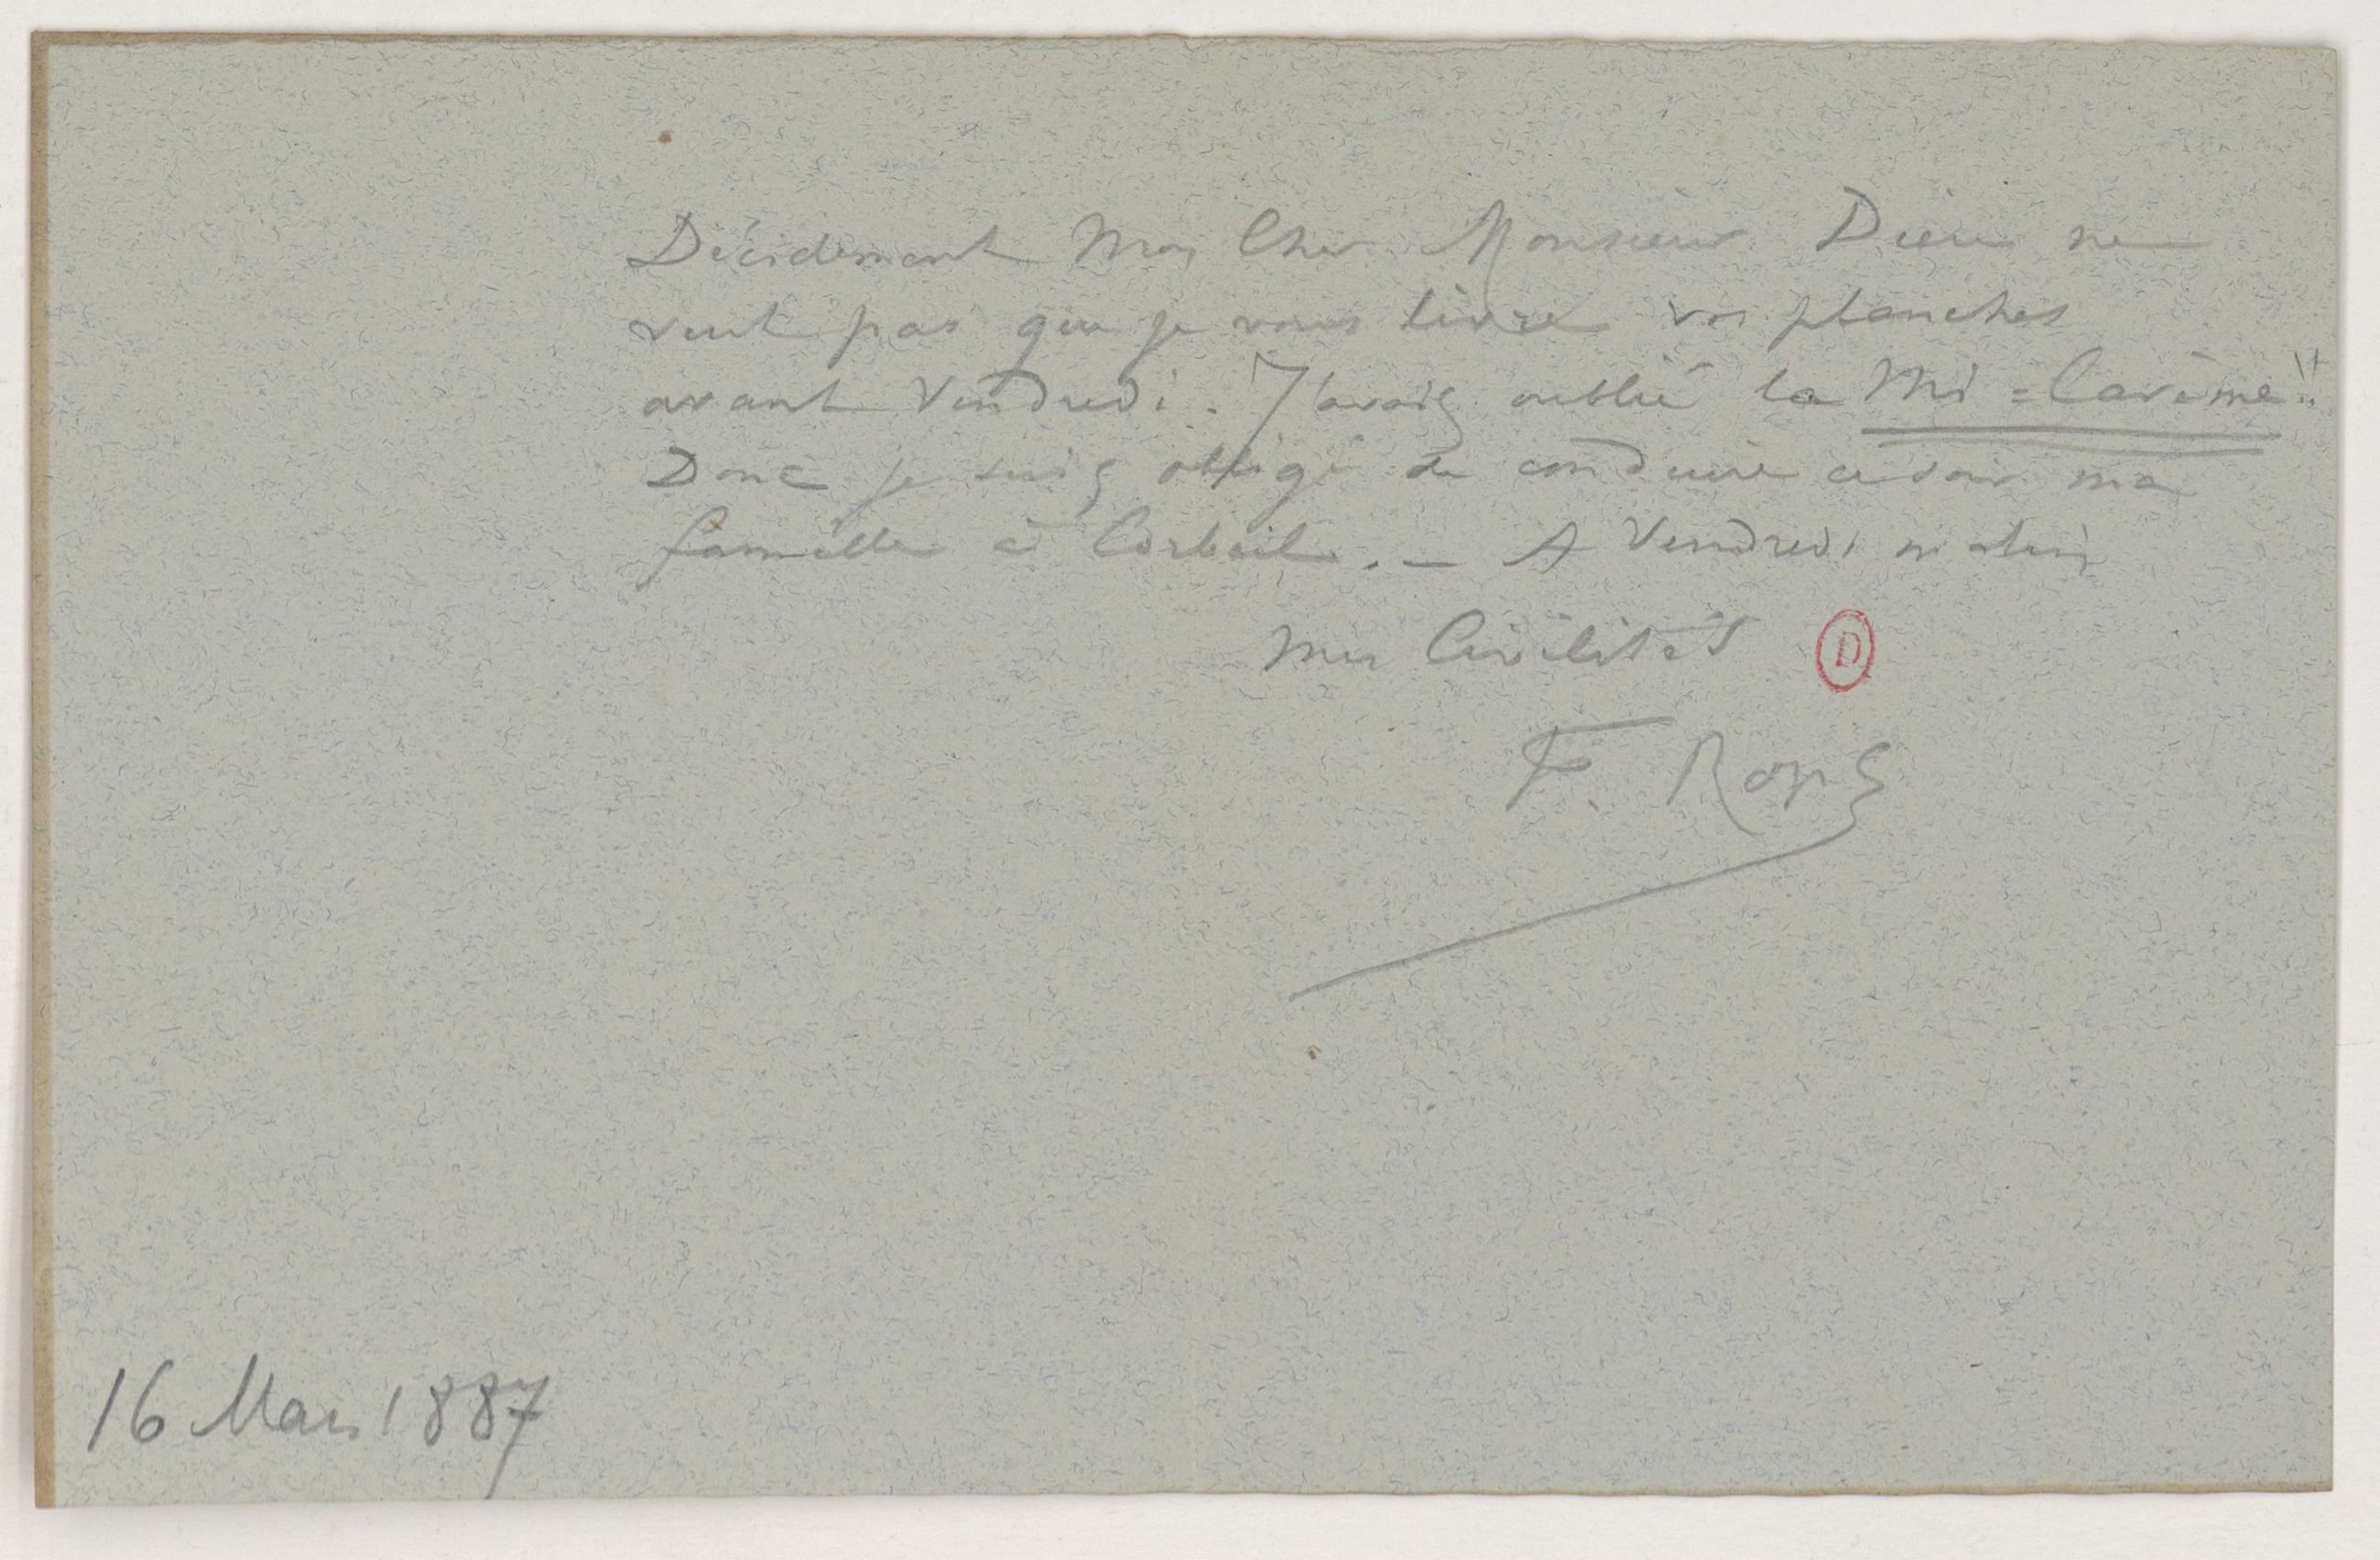 Décidement Mon Cher Monsieur Dieu ne
veut pas que je vous livre vos planches
avant Vendredi. J'avais oublié la Mi=Carème"
Donc je suis obligé de conduire ce soir ma
famille à Corbeil. _ A Vendredi matin
Mes Civilités
D
F. Rops
16 Mars 1887